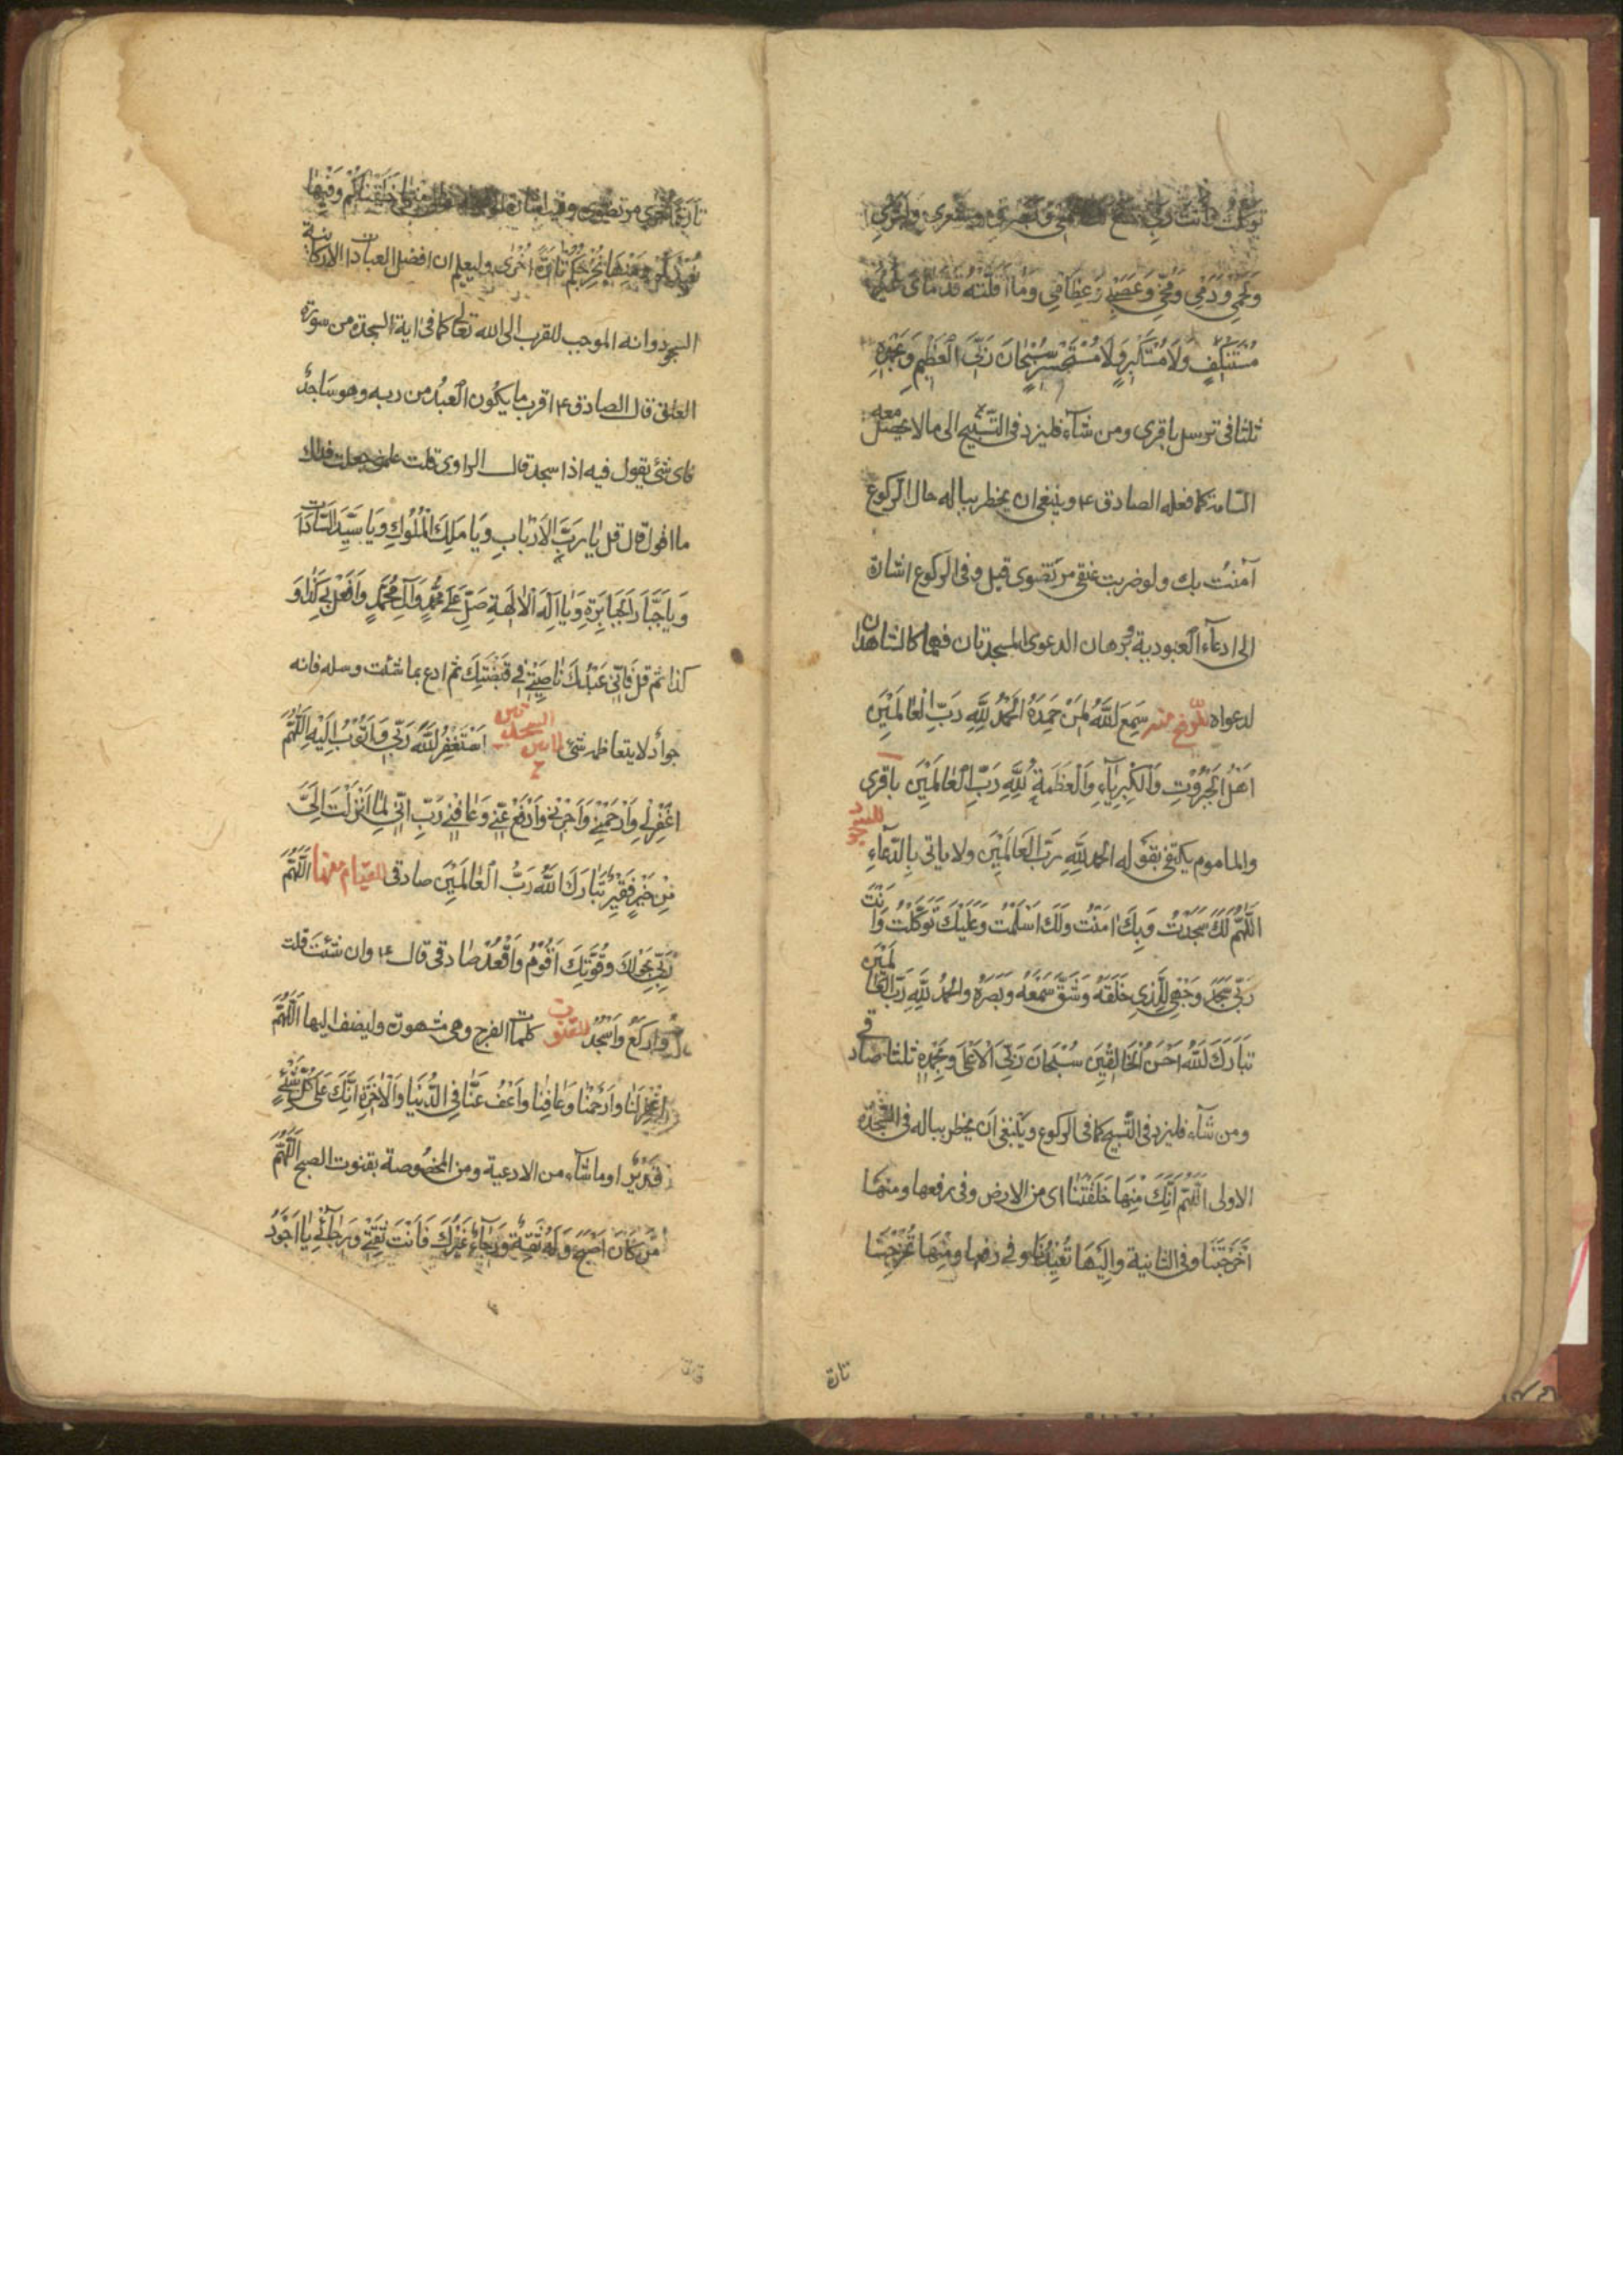 توكلت وانت ربي خشع لك سمعي وبصري وشعري وبشري
وَلَحْمِي وَدَمِي وَمُخِّي وَعَصَبِي وَعِظَامِي وَمَا اَقَلَّتْهُ قَدَمَايَ غَيْرَ
مُسْتَنْكِفٍ وَلَا مُسْتَكْبِرٍ وَلَا مُسْتَحْسِرٍ سُبْحَانَ رَبِّيَ الْعَظِيمِ وَبِحَمْدِهِ
ثلثا فى ترسل باقرى ومن شآء فليزد فى التسبيح الى ما لا يحصل معه
السامة كما فعله الصادق ع وينبغى ان يخطر بباله حال الركوع
آمنت بك ولو ضربت عنقى مرتضوى قيل وفى الركوع اشارة
الى ادعآء العبودية وبرهان الدعوى السجدتان فهما كالشاهدان
لدعواه للرفع منه سَمِعَ اللّٰهُ لِمَنْ حَمِدَهُ اَلْحَمْدُ لِلّٰهِ رَبِّ الْعَالَمِيْنَ
اَهْلِ الْجَبَرُوْتِ وَالْكِبْرِيَآءِ وَالْعَظَمَةِ لِلّٰهِ رَبِّ الْعَالَمِيْنَ باقرى
والماموم يكتفى بقوله الحمد للّٰهِ رَبِّ الْعَالَمِيْنَ ولا ياتى بالدعآء للسجود
اَللّٰهُمَّ لَكَ سَجَدْتُ وَبِكَ اٰمَنْتُ وَلَكَ اَسْلَمْتُ وَعَلَيْكَ تَوَكَّلْتُ وَاَنْتَ
رَبِّيْ سَجَدَ وَجْهِيَ لِلَّذِيْ خَلَقَهُ وَشَقَّ سَمْعَهُ وَبَصَرَهُ وَالْحَمْدُ لِلّٰهِ رَبِّ الْعَالَمِيْنَ
تَبَارَكَ اللّٰهُ اَحْسَنُ الْخَالِقِيْنَ سُبْحَانَ رَبِّيَ الْاَعْلٰى وَبِحَمْدِهِ ثلثا صادقى
ومن شآء فليزد فى التسبيح كما فى الركوع وينبغى ان يخطر بباله فى السجدة
الاولى اَللّٰهُمَّ اِنَّكَ مِنْهَا خَلَقْتَنَا اى من الارض وفى رفعها ومنها
اَخْرَجْتَنَا وفى الثانية واِلَيْهَا تُعِيْدُنَا وفى رفعها ومِنْهَا تُخْرِجُنَا
تارة
تَارَةً اُخْرٰى مرتضوى وفيه اشارة خَلَقْنَاكُمْ وَفِيْهَا
نُعِيْدُكُمْ وَمِنْهَا نُخْرِجُكُمْ تَارَةً اُخْرٰى وليعلم ان افضل العبادات الاركانية
السجود وانه الموجب للقرب الى الله تعالى كما فى اية السجدة من سورة
العلق قال الصادق ع اقرب ما يكون العبد من ربه وهو ساجد
فاى شئ يقول فيه اذا سجد قال الراوى قلت علمنى جعلت فداك
ما اقول قال قل يَا رَبَّ الْاَرْبَابِ وَيَا مَلِكَ الْمُلُوْكِ وَيَا سَيِّدَ السَّادَاتِ
وَيَا جَبَّارَ الْجَبَابِرَةِ وَيَا اِلٰهَ الْاٰلِهَةِ صَلِّ عَلٰى مُحَمَّدٍ وَآلِ مُحَمَّدٍ وَافْعَلْ بِيْ كَذَا وَ
كذا ثم قل فَاِنِّيْ عَبْدُكَ نَاصِيَتِيْ فِيْ قَبْضَتِكَ ثم ادع بما شئت وسله فانه
جواد لا يتعاظمه شئ لما بين السجدتين اَسْتَغْفِرُ اللّٰهَ رَبِّيْ وَاَتُوْبُ اِلَيْهِ اَللّٰهُمَّ
اغْفِرْ لِيْ وَارْحَمْنِيْ وَاجْبُرْنِيْ وَادْفَعْ عَنِّيْ وَعَافِنِيْ رَبِّ اِنِّيْ لِمَا اَنْزَلْتَ اِلَيَّ
مِنْ خَيْرٍ فَقِيْرٌ تَبَارَكَ اللّٰهُ رَبُّ الْعَالَمِيْنَ صادقى للقيام منها اَللّٰهُمَّ
رَبِّيْ بِحَوْلِكَ وَقُوَّتِكَ اَقُوْمُ وَاَقْعُدُ صادقى قال ع وان شئت قلت
وَاَرْكَعُ وَاَسْجُدُ للقنوت كلمات الفرج وهى مشهورة وليضف اليها اَللّٰهُمَّ
اغْفِرْ لَنَا وَارْحَمْنَا وَعَافِنَا وَاعْفُ عَنَّا فِي الدُّنْيَا وَالْاٰخِرَةِ اِنَّكَ عَلٰى كُلِّ شَيْءٍ
قَدِيْرٌ او ما شآء من الادعية ومن المخصوصة بقنوت الصبح اَللّٰهُمَّ
مَنْ كَانَ اَصْبَحَ وَلَهُ ثِقَةٌ وَرَجَآءٌ غَيْرُكَ فَاَنْتَ ثِقَتِيْ وَرَجَآئِيْ يَا اَجْوَدَ